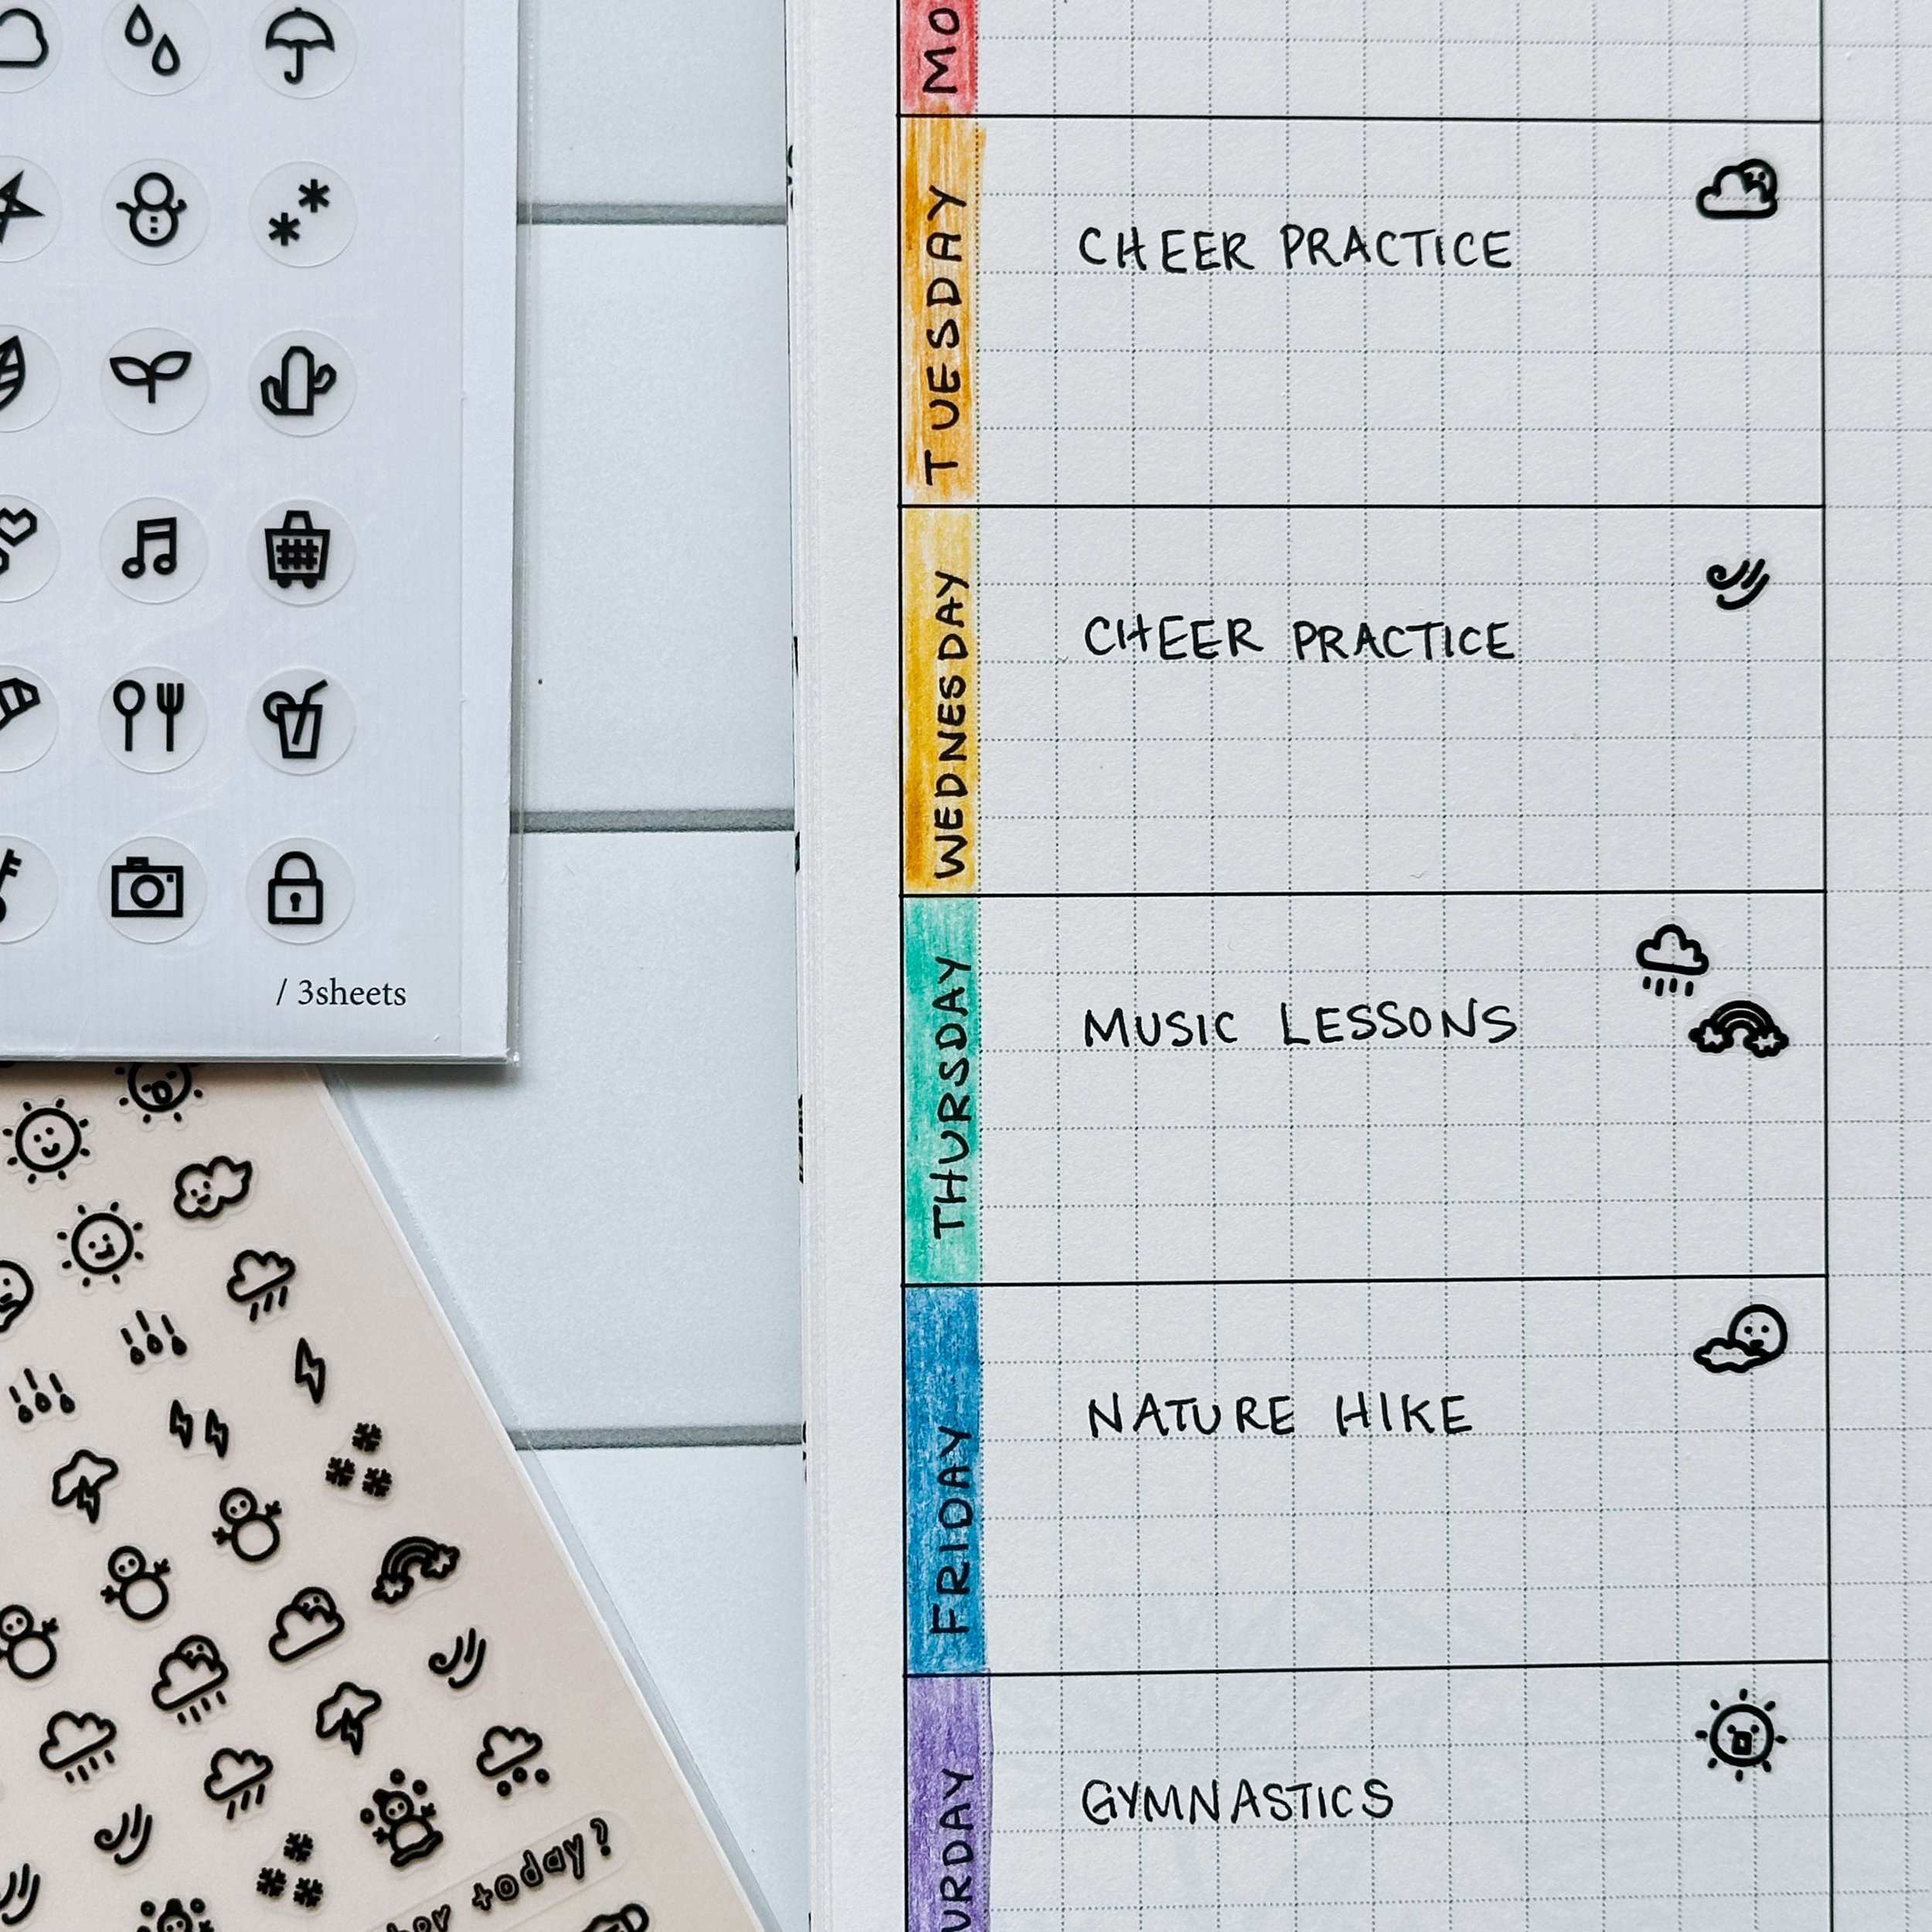 / 3sheets
today?
MO
TUESDAY
CHEER PRACTICE
WEDNESDAY
CHEER PRACTICE
THURSDAY
MUSIC LESSONS
FRIDAY
NATURE HIKE
URDAY
GYMNASTICS